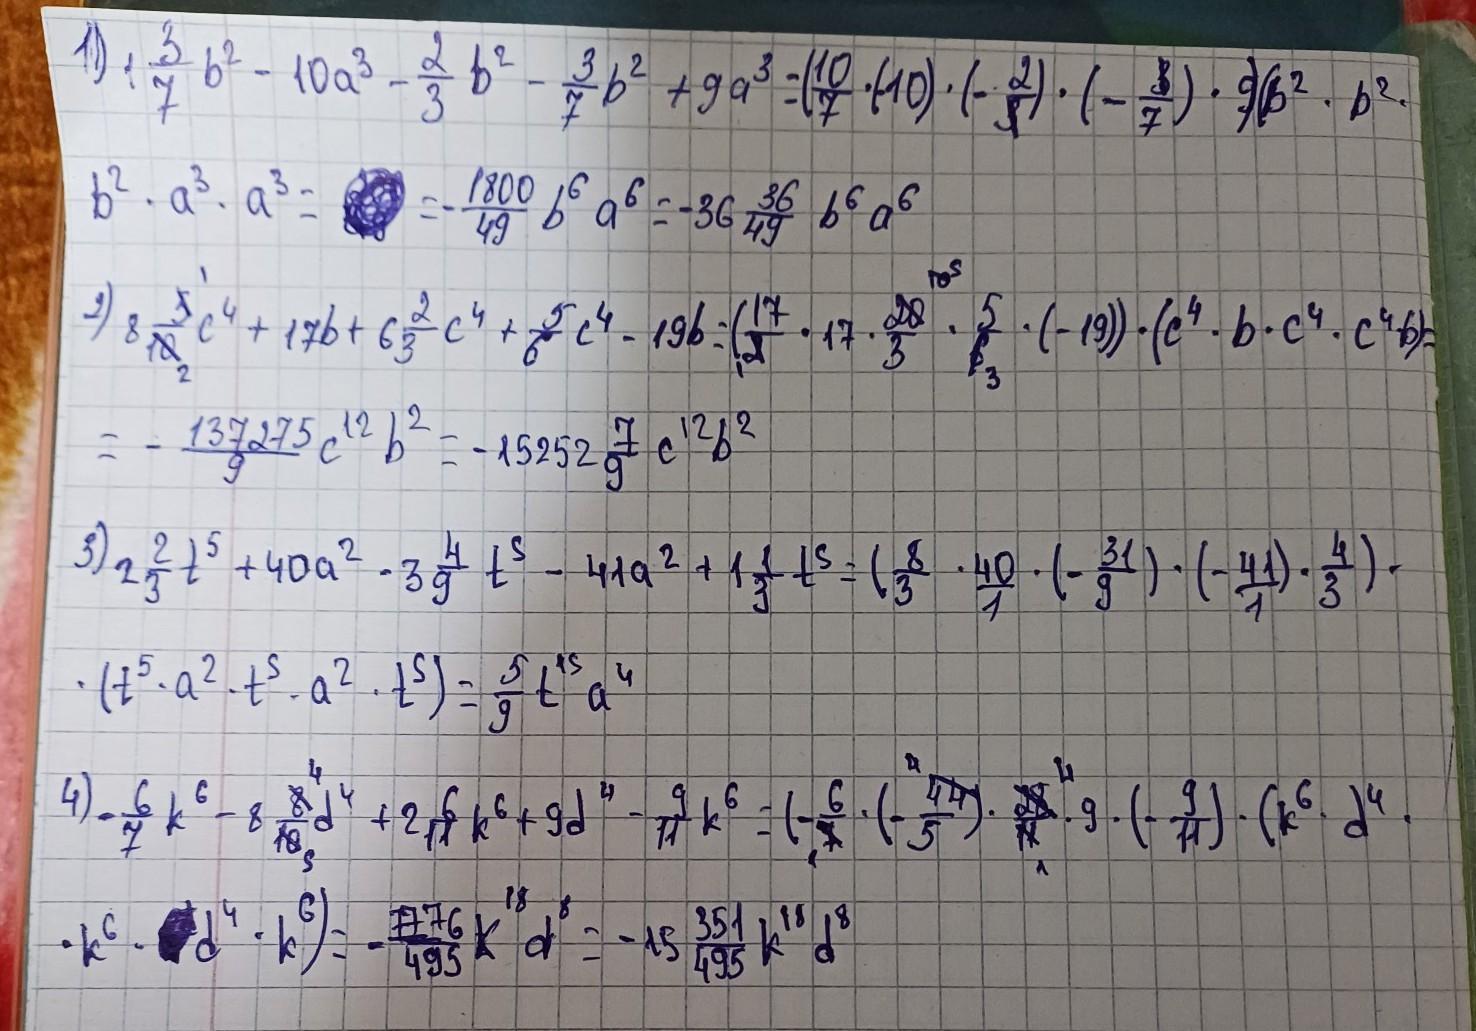 1) 1 3/7 b² - 10a³ - 2/3 b² - 3/7 b² + 9a³ = (10/7 · (-10) · (- 2/3) · (- 3/7) · 9)(b² · b² ·
b² · a³ · a³ = = - 1800/49 b⁶ a⁶ = -36 36/49 b⁶ a⁶
2) 8 5/10 c⁴ + 17b + 6 2/3 c⁴ + 5/6 c⁴ - 19b = (17/2 · 17 · 20/3 · 5/6 · (-19)) · (c⁴ · b · c⁴ · c⁴ b) =
= - 137275/9 c¹² b² = -15252 7/9 c¹² b²
3) 2 2/3 t⁵ + 40a² - 3 4/9 t⁵ - 41a² + 1 1/3 t⁵ = (8/3 · 40/1 · (- 31/9) · (- 41/1) · 4/3) ·
· (t⁵ · a² · t⁵ · a² · t⁵) = 5/9 t¹⁵ a⁴
4) - 6/7 k⁶ - 8 8/10 d⁴ + 2 6/11 k⁶ + 9d⁴ - 9/11 k⁶ = (- 6/7 · (- 44/5) · 28/11 · 9 · (- 9/11) · (k⁶ · d⁴ ·
· k⁶ · d⁴ · k⁶) = - 7776/495 k¹⁸ d⁸ = -15 351/495 k¹⁸ d⁸